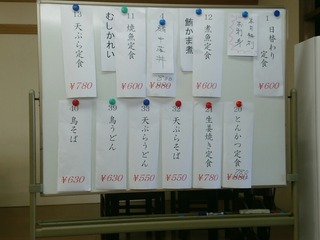 1
日替わり
定食
￥600
12
煮魚定食
￥600
鮪かま煮
￥880
11
焼魚定食
￥600
むしかれい
13
天ぷら定食
￥780
29
とんかつ定食
24
生姜焼き定食
￥780
32
天ぷらそば
￥550
33
天ぷらうどん
￥550
39
鳥うどん
￥630
40
鳥そば
￥630